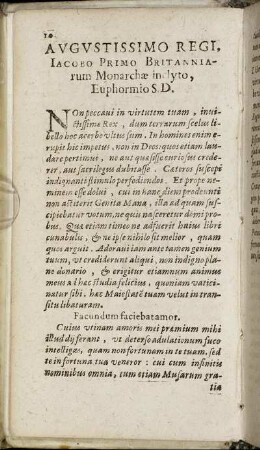 10
AVGVSTISSIMO REGI,
IACOBO PRIMO BRITANNIA-
rum Monarchæ inclyto,
Euphormio S.D.
NOn peccaui in virtutem tuam, inui-
ctissime Rex, dum terrarum scelus li-
bello hoc acerbo vltus sum. In homines enim e-
rupit hic impetus, non in Deos: quos etiam lau-
dare pertimui, ne aut quasi esse curiosus crede-
rer, aut sacrilegus dubitasse. Cæteros suscepi
indignanti stimulo perfodiendos. Et prope ne-
minem esse dolui, cui in hanc diem prodeunti
non astiterit Genita Mana, ista ad quam su-
scipiebatur votum, ne quis nasceretur domi pro-
bus. Qua etiam timeo ne adfuerit huius libri
cunabulis, & ne ipse nihilo sit melior, quam
quos arguit. Adoraui iam anté tamen genium
tuum, vt crediderunt aliqui, non indigno pla-
ne donario, & erigitur etiamnum animus
meus a l hæc studia felicius, quoniam vatici-
natur sibi, hac Maiestatē tuam velut in tran-
situ libaturam.
Facundum faciebat amor.
Cuius vtinam amoris mei præmium mihi
illud differant, vt deterso adulationum fuco
intelligas, quam non fortunam in te tuam, sed
te in fortuna tua veneror: cui cum infinitis
nominibus omnia, tum etiam Musarum gra-
tia